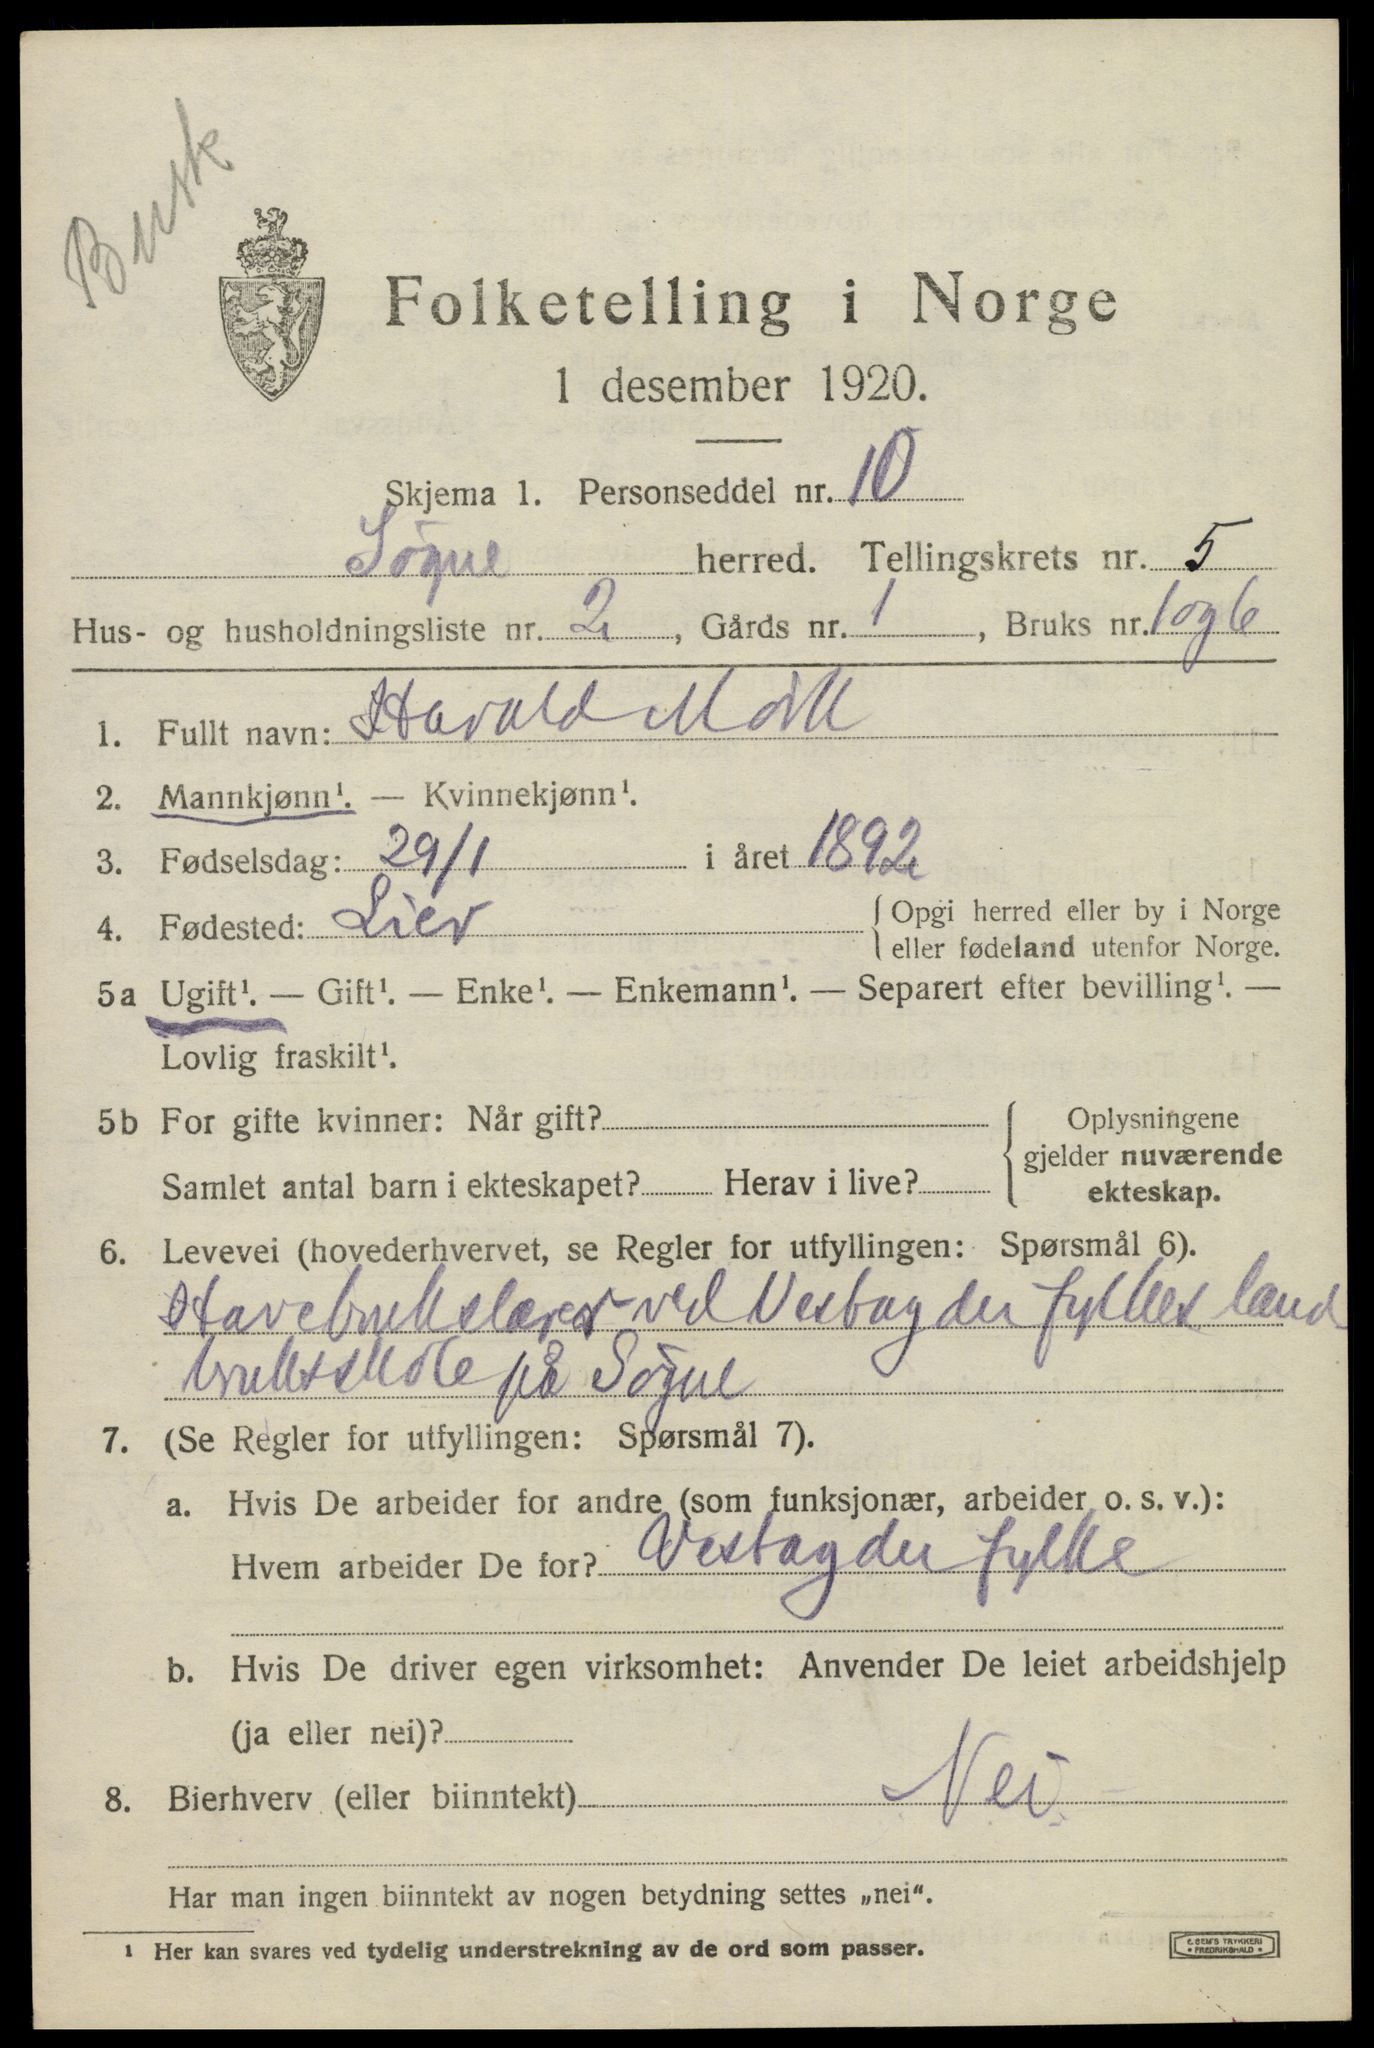 Busk
Folketelling i Norge
1 desember 1920.
Skjema 1. Personseddel nr. 10
Søgne herred. Tellingskrets nr. 5
Hus- og husholdningsliste nr. 2, Gårds nr. 1, Bruks nr. 1 og 6
1. Fullt navn: Harald Mörk
2. Mannkjønn¹. — Kvinnekjønn¹.
3. Fødselsdag: 29/1 i året 1892
4. Fødested: Lier { Opgi herred eller by i Norge
eller fødeland utenfor Norge.
5a Ugift¹. — Gift¹. — Enke¹. — Enkemann¹. — Separert efter bevilling¹. —
Lovlig fraskilt¹.
5b For gifte kvinner: Når gift? { Oplysningene
gjelder nuværende
Samlet antal barn i ekteskapet? Herav i live? ekteskap.
6. Levevei (hovederhvervet, se Regler for utfyllingen: Spørsmål 6).
Havebrukslærer ved Vestagder fylkes land
bruksskole på Søgne
7. (Se Regler for utfyllingen: Spørsmål 7).
a. Hvis De arbeider for andre (som funksjonær, arbeider o. s. v.):
Hvem arbeider De for? Vestagder fylke
b. Hvis De driver egen virksomhet: Anvender De leiet arbeidshjelp
(ja eller nei)?
8. Bierhverv (eller biinntekt) Nei
Har man ingen biinntekt av nogen betydning settes „nei".
¹ Her kan svares ved tydelig understrekning av de ord som passer.
E. SEM'S TRYKKERI
• FREDRIKSHALD •